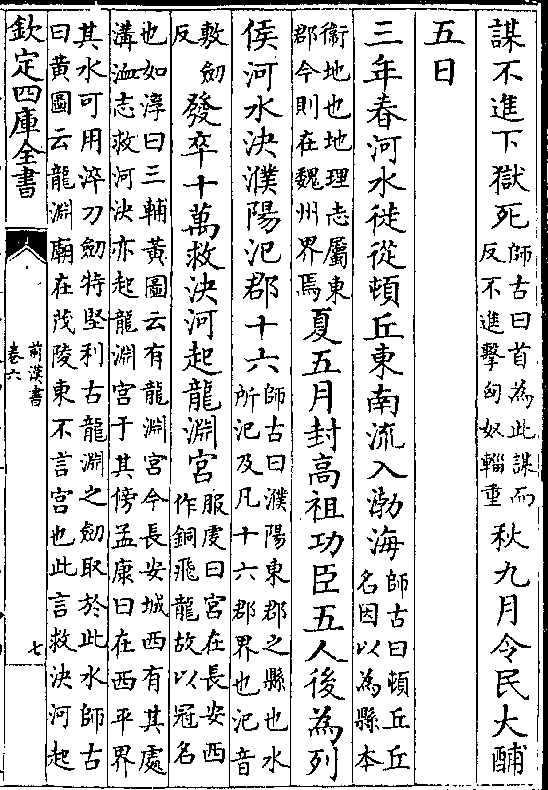 謀不進下獄死師古曰首為此謀而
反不進擊匈奴輜重秋九月令民大酺
五日
三年春河水徙從頓丘東南流入渤海師古曰頓丘丘
名因以為縣本
衛地也地理志屬東
郡今則在魏州界焉夏五月封高祖功臣五人後為列
侯河水決濮陽氾郡十六師古曰濮陽東郡之縣也水
所氾及凡十六郡界也氾音
敷劒
反發卒十萬救決河起龍淵宮服虔曰宮在長安西
作銅飛龍故以冠名
也如淳曰三輔黃圖云有龍淵宮今長安城西有其處
溝洫志救河決亦起龍淵宮于其傍孟康曰在西平界
其水可用淬刀劒特堅利古龍淵之劒取於此水師古
曰黃圖云龍淵廟在茂陵東不言宮也此言救決河起
欽定四庫全書
前漢書
卷六
七